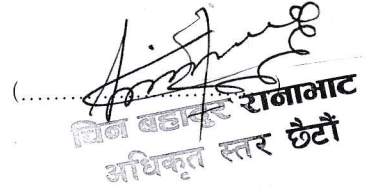 (..........
चिन बहादुर रानाभाट
अधिकृत स्तर छैटौं